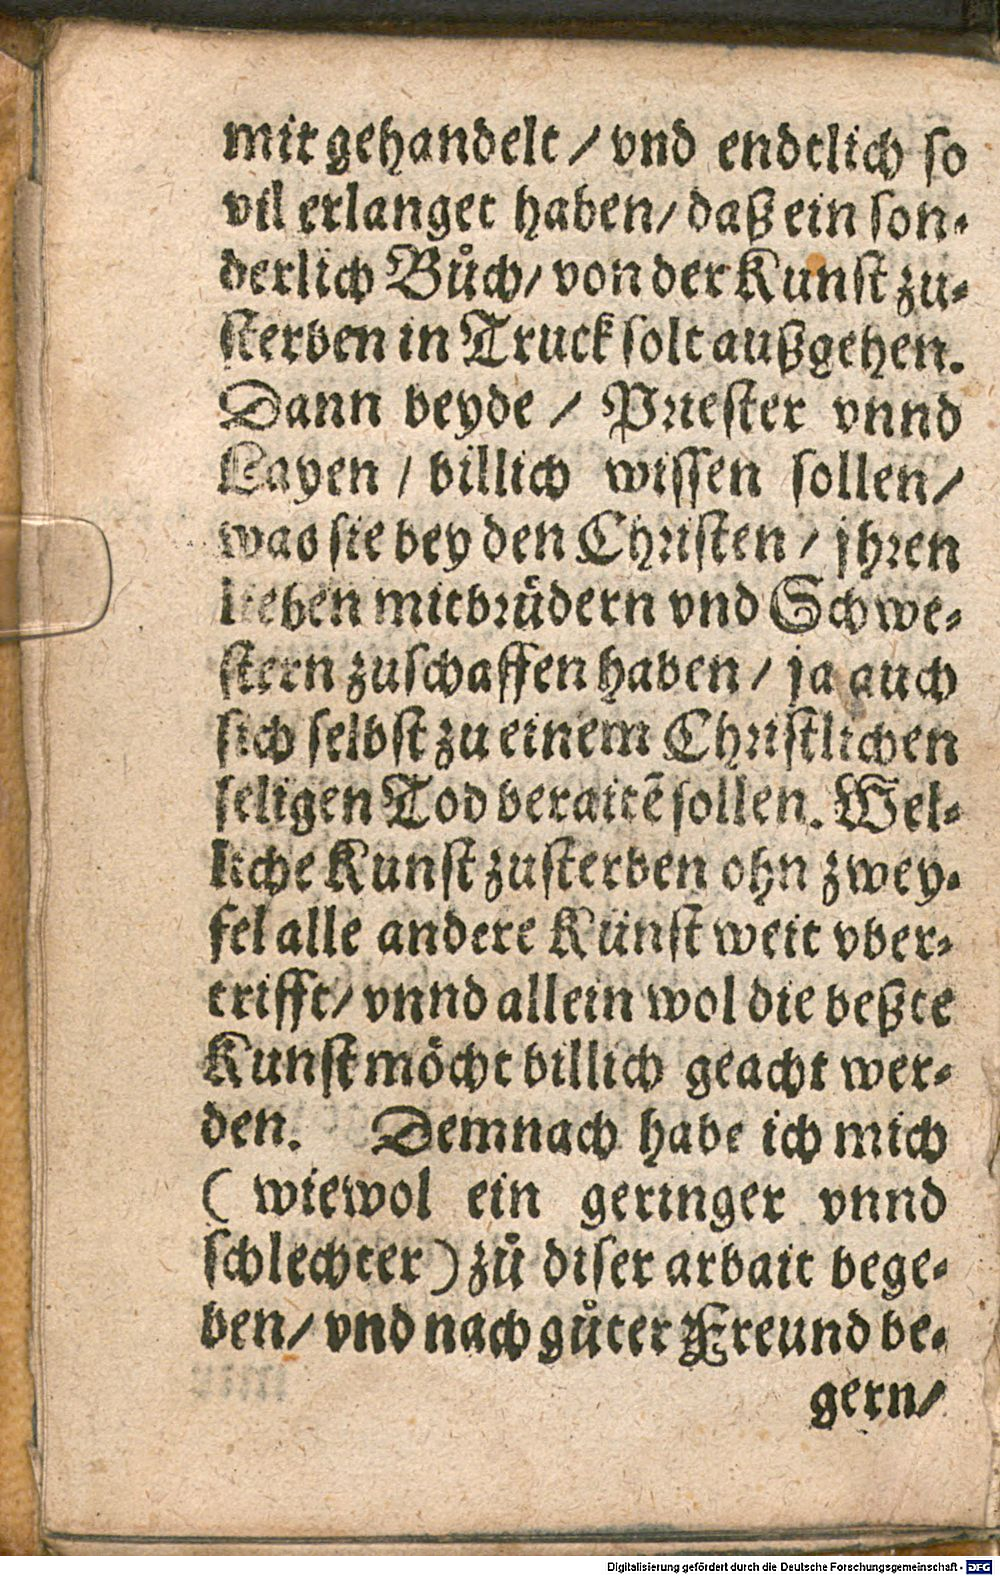 mit gehandelt / vnd endtlich so
vil erlanget haben / daß ein son-
derlich Bůch / von der Kunst zu-
sterben in Truck solt außgehen.
Dann beyde / Priester vnnd
Layen / billich wissen sollen /
was sie bey den Christen / jhren
lieben mitbrüdern vnd Schwe-
stern zuschaffen haben / ja auch
sich selbst zu einem Christlichen
seligen Tod beraitẽ sollen. Wel-
liche Kunst zusterben ohn zwey-
fel alle andere Künst weit vber-
trifft / vnnd allein wol die beßte
Kunst möcht billich geacht wer-
den. Demnach habe ich mich
( wiewol ein geringer vnnd
schlechter ) zů diser arbait bege-
ben / vnd nach gůter Freund be-
gern /
Digitalisierung gefördert durch die Deutsche Forschungsgemeinschaft - DFG